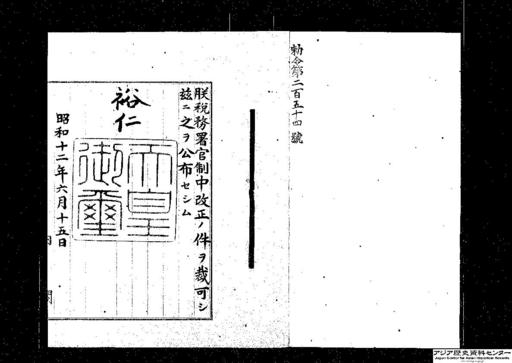 勅令第二百五十四號
朕税務署官制中改正ノ件ヲ裁可シ
玆ニ之ヲ公布セシム
裕仁
天皇
御璽
昭和十二年六月十五日
内閣
アジア歴史資料センター
Japan Center for Asian Historical Records